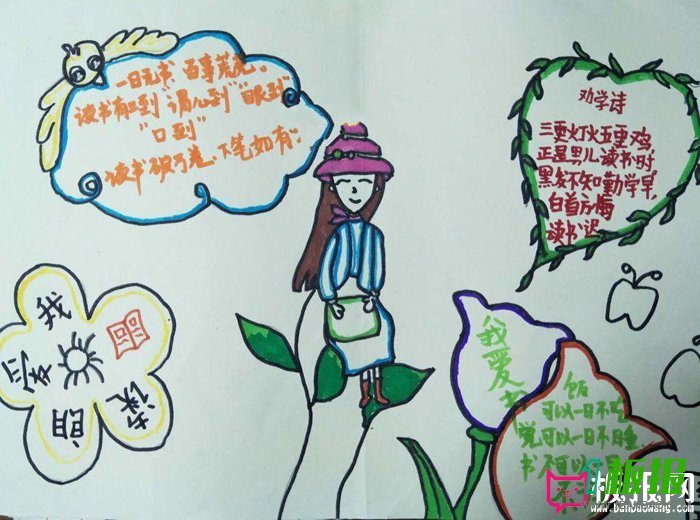 一日无书 百事荒芜。
读书有三到"谓心到""眼到"
"口到"
读书破万卷,下笔如有
劝学诗
三更灯火五更鸡,
正是男儿读书时
黑发不知勤学早,
白首方悔
读书迟
我
爱
朗
读
我爱书
饭
可以一日不吃
觉可以一日不睡
书不可以一日
不
板报
板报网
www.banbaowang.com